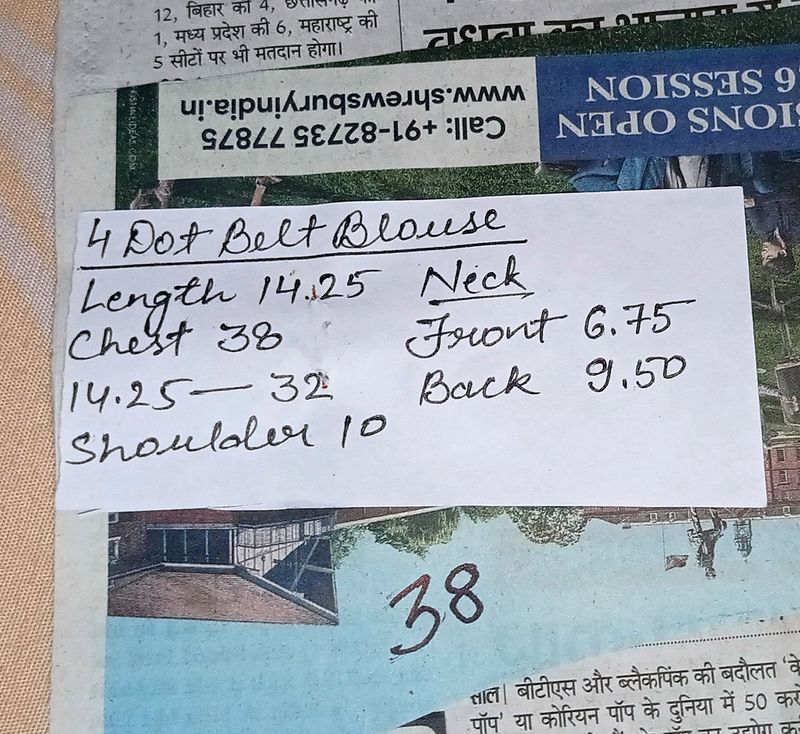 12, बिहार की 4,
1, मध्य प्रदेश की 6, महाराष्ट्र की
5 सीटों पर भी मतदान होगा।
IONS OPEN
6 SESSION
Call: +91-82735 77875
www.shrewsburyindia.in
4 Dot Belt Blouse
Length 14.25
Chest 38
14.25 — 32
Shoulder 10
Neck
Front 6.75
Back 9.50
38
साल। बीटीएस और ब्लैकपिंक की बदौलत 'के
पॉप' या कोरियन पॉप के दुनिया में 50 कर